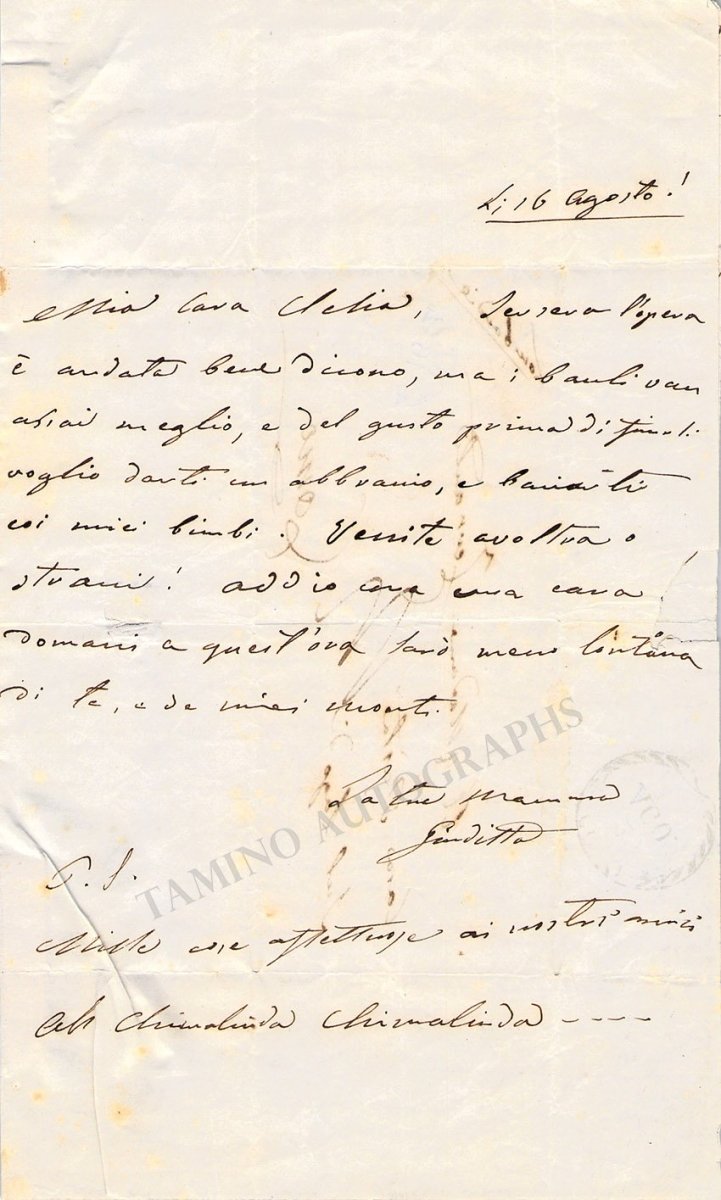 Li 16 Agosto!
Mia Cara Clelia, Jersera l'opera
è andata bene dicono, ma i bauli van
assai meglio, e del gusto prima di
voglio darti un abbraccio, e
coi miei bimbi. Venite
addio cara cara cara!
domani a quest'ora sarò meno lontana
di te, e da miei monti.
La tua mamma
Giuditta
P. S.
Mille cose affettuose ai nostri amici
Ah Chimalinda Chimalinda ----
TAMINO AUTOGRAPHS